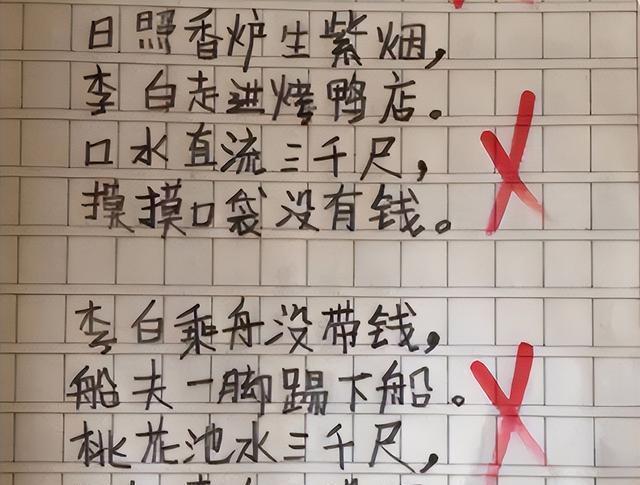 日照香炉生紫烟，
李白走进烤鸭店。
口水直流三千尺，
摸摸口袋没有钱。
李白乘舟没带钱，
船夫一脚踢下船。
桃花池水三千尺，